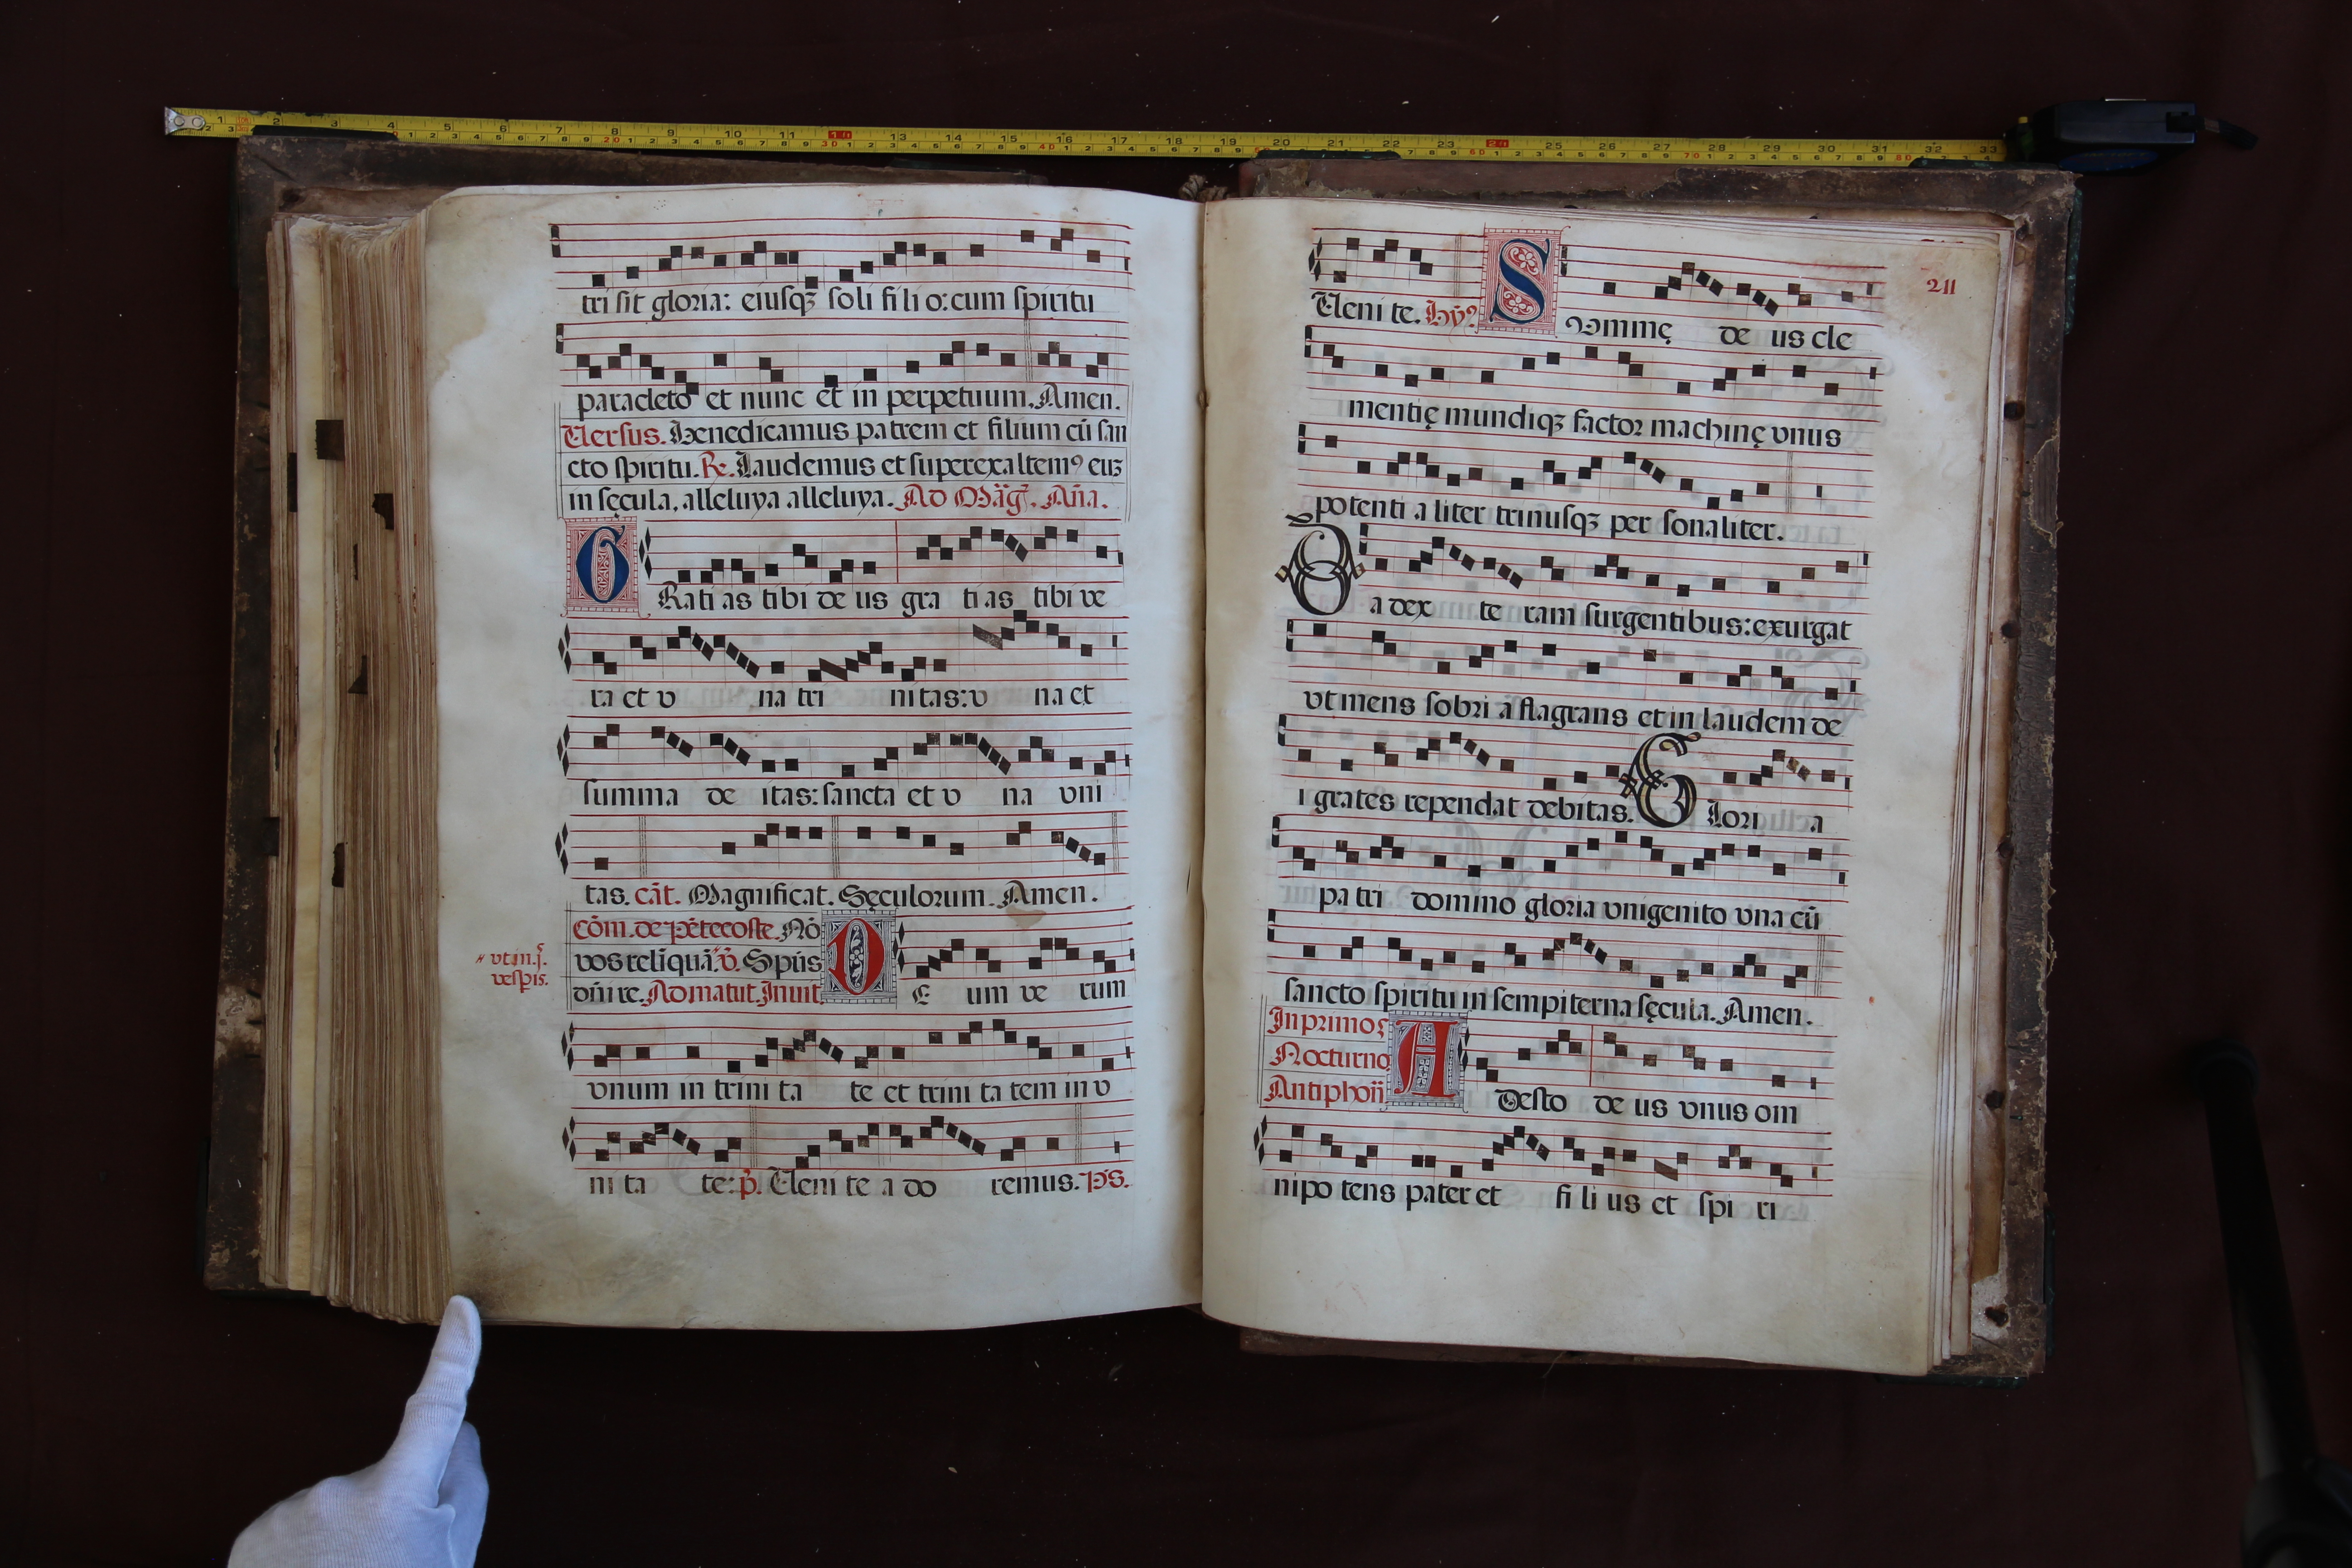 tri sit gloria: eiusqꝫ soli fi li o: cum spiritu
paracleto et nunc et in perpetuum. Amen.
Versus. Benedicamus patrem et filium cũ san
cto spiritu. ℟. Laudemus et superexaltemꝰ euʒ
in sęcula, alleluya alleluya. Ad Mãg. Añа.
GRati as tibi de us gra ti as tibi ve
ra et v na tri nitas: v na et
summa de itas: sancta et v na vni
tas. cãt. Magnificat. Sęculorum. Amen.
Cõm. de pẽtecoste. Nõ
vos relĩquã. ṽ. Spũs
dñi re. Ad matut. Inuit.
vt in .j.
vespis.
DE um ve rum
vnum in trini ta te et trini ta tem in v
ni ta te: p̃. Veni te a do remus. Ps.
211
Veni te. Hỹꝰ. SVmmę de us cle
mentię mundiqꝫ factor machinę vnus
potenti a liter trinusqꝫ per sonaliter.
Da dex te ram surgentibus: exurgat
vt mens sobri a flagrans et in laudem de
i grates rependat debitas. Glori a
pa tri domino gloria vnigenito vna cũ
sancto spiritu in sempiterna sęcula. Amen.
In primo
Nocturno
Antiphoñ
ADesto de us vnus om
nipo tens pater et fi li us et spi ri